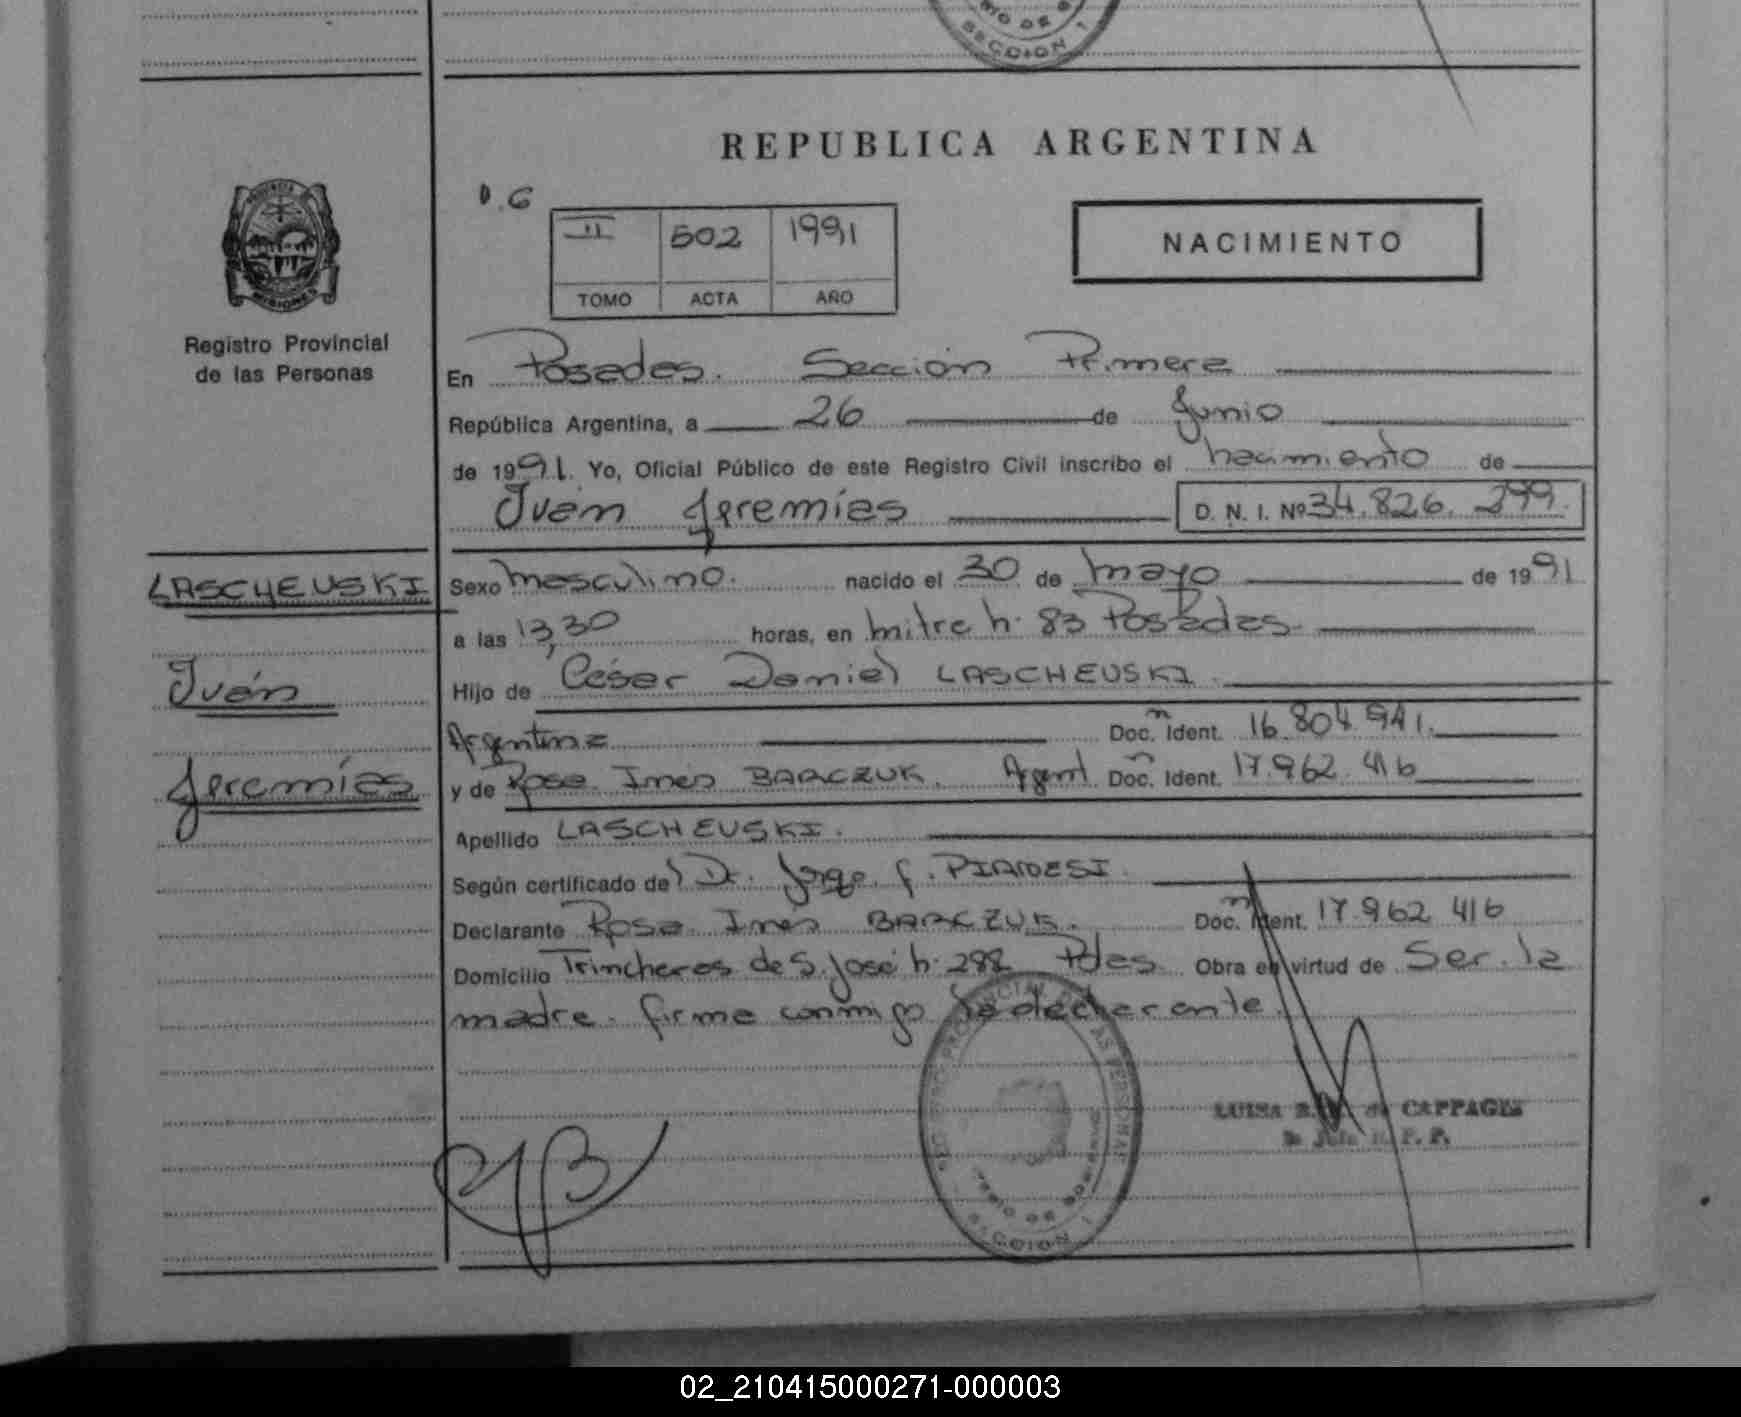 SECCION 1
REPUBLICA ARGENTINA
D.G
II 502 1991
TOMO ACTA AÑO
NACIMIENTO
MISIONES
Registro Provincial
de las Personas
En Posadas. Sección Primera
República Argentina, a 26 de Junio
de 1991. Yo, Oficial Público de este Registro Civil inscribo el nacimiento de
Iván Jeremías D. N. I. Nº 34.826.299.
LASCHEUSKI
Iván
Jeremías
Sexo masculino. nacido el 30 de mayo de 1991
a las 13,30 horas, en mitre n. 83 Posadas.
Hijo de César Daniel LASCHEUSKI.
Argentina Doc. Ident. 16.804.941.
y de Rosa Inés BARCZUK. Argent. Doc. Ident. 17.962.416
Apellido LASCHEUSKI.
Según certificado del Dr. Jorge
Declarante Rosa Inés BARCZUK. Doc. Ident. 17.962 416
Domicilio Trincheras de S. José n. 288 Pdas Obra en virtud de Ser. la
madre. firma conmigo la declarante.
LUISA de CAPPAGLI
SECCION 1
02_210415000271-000003